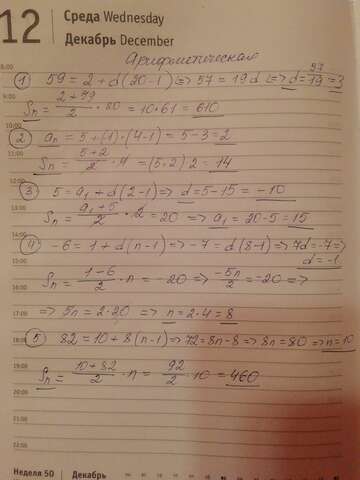 12
Среда Wednesday
Декабрь December
Арифметическая
8:00
① 59 = 2 + d(20-1) => 57 = 19d => d = 57/19 = 3
9:00
Sn = (2+59)/2 · 20 = 10·61 = 610
10:00
② an = 5 + (-1)·(4-1) = 5-3 = 2
11:00
Sn = (5+2)/2 · 4 = (5+2)·2 = 14
12:00
③ 5 = a1 + d(2-1) => d = 5-15 = -10
13:00
Sn = (a1+5)/2 · 2 = 20 => a1 = 20-5 = 15
14:00
④ -6 = 1 + d(n-1) => -7 = d(8-1) => 7d = -7 =>
d = -1
15:00
Sn = (1-6)/2 · n = -20 => -5n/2 = -20 =>
16:00
17:00
=> 5n = 2·20 => n = 2·4 = 8
18:00
⑤ 82 = 10 + 8(n-1) => 72 = 8n-8 => 8n = 80 => n = 10
19:00
Sn = (10+82)/2 · n = 92/2 · 10 = 460
20:00
21:00
22:00
Неделя 50 Декабрь